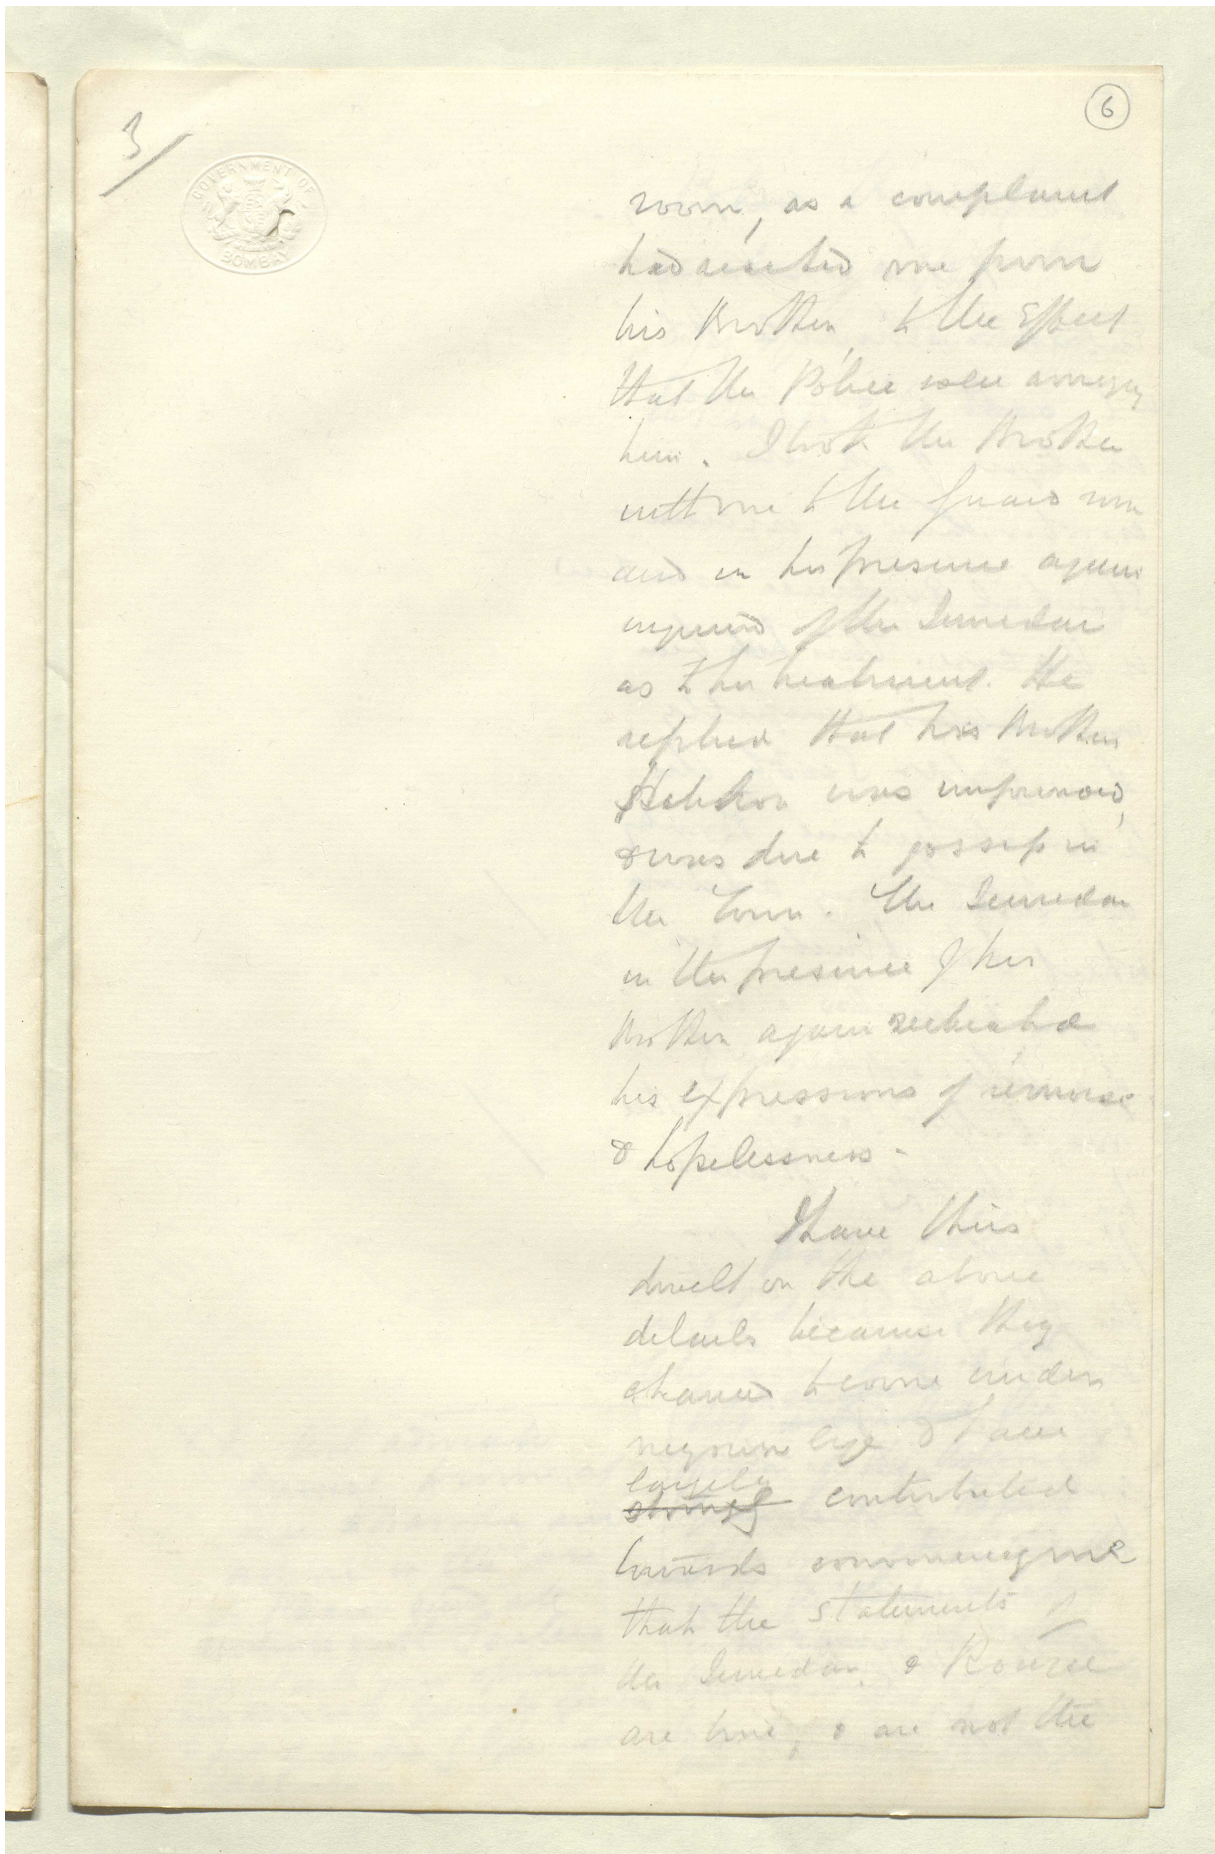 3/
6
GOVERNMENT OF
BOMBAY
room, as a complaint
had reached me from
his Brother, to the Effect
that the Police were annoying
him. I took the Brother
with me to the Guard room
and in his presence again
inquired of the Jemedar
as to his treatment. He
replied that his Brother
was
& was due to gossip in
the Town. The Jemedar
in the presence of his
Brother again reiterated
his expressions of remorse
& hopelessness -
I have thus
dwelt on the above
details because they
chanced to come under
my own eye & have
largely
strongly contributed
towards convincing me
that the statements of
the Jemedar, &
are true, & are not the